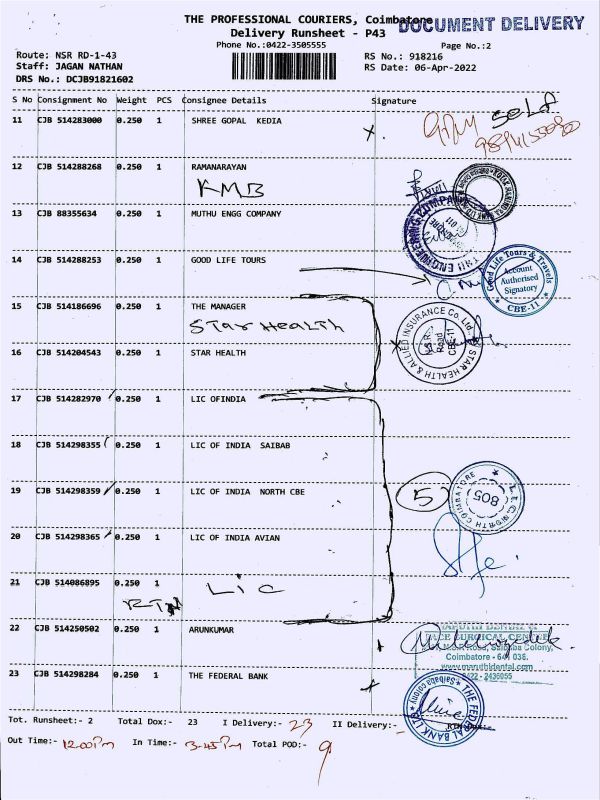 THE PROFESSIONAL COURIERS, Coimbatore
DOCUMENT DELIVERY
Delivery Runsheet - P43
Phone No.:0422-3505555
Page No.:2
Route: NSR RD-1-43
RS No.: 918216
Staff: JAGAN NATHAN
RS Date: 06-Apr-2022
DRS No.: DCJB91821602
S No Consignment No Weight PCS Consignee Details Signature
11 CJB 514283000 0.250 1 SHREE GOPAL KEDIA
self
12 CJB 514288268 0.250 1 RAMANARAYAN
KMB
13 CJB 88355634 0.250 1 MUTHU ENGG COMPANY
14 CJB 514288253 0.250 1 GOOD LIFE TOURS
Good Life Tours & Travels
Account
Authorised
Signatory
CBE-11
15 CJB 514186696 0.250 1 THE MANAGER
Star Health
STAR HEALTH & ALLIED INSURANCE Co. Ltd
N.S.R.
Road
CBE-11
16 CJB 514204543 0.250 1 STAR HEALTH
17 CJB 514282970 0.250 1 LIC OFINDIA
18 CJB 514298355 0.250 1 LIC OF INDIA SAIBAB
19 CJB 514298359 0.250 1 LIC OF INDIA NORTH CBE
5
L.I.C. NORTH COIMBATORE
805
20 CJB 514298365 0.250 1 LIC OF INDIA AVIAN
21 CJB 514086895 0.250 1
LIC
RTN
22 CJB 514250502 0.250 1 ARUNKUMAR
FACE SURGICAL CENTER
N.S.R. Road, Saibaba Colony,
Coimbatore - 641 038.
www.maruthidental.com
0422 - 2436055
23 CJB 514298284 0.250 1 THE FEDERAL BANK
THE FEDERAL BANK LTD
Saibaba colony
Tot. Runsheet:- 2 Total Dox:- 23 I Delivery:- 23 II Delivery:-
Out Time:- 12.00 Pm In Time:- 3.45 Pm Total POD:- 9